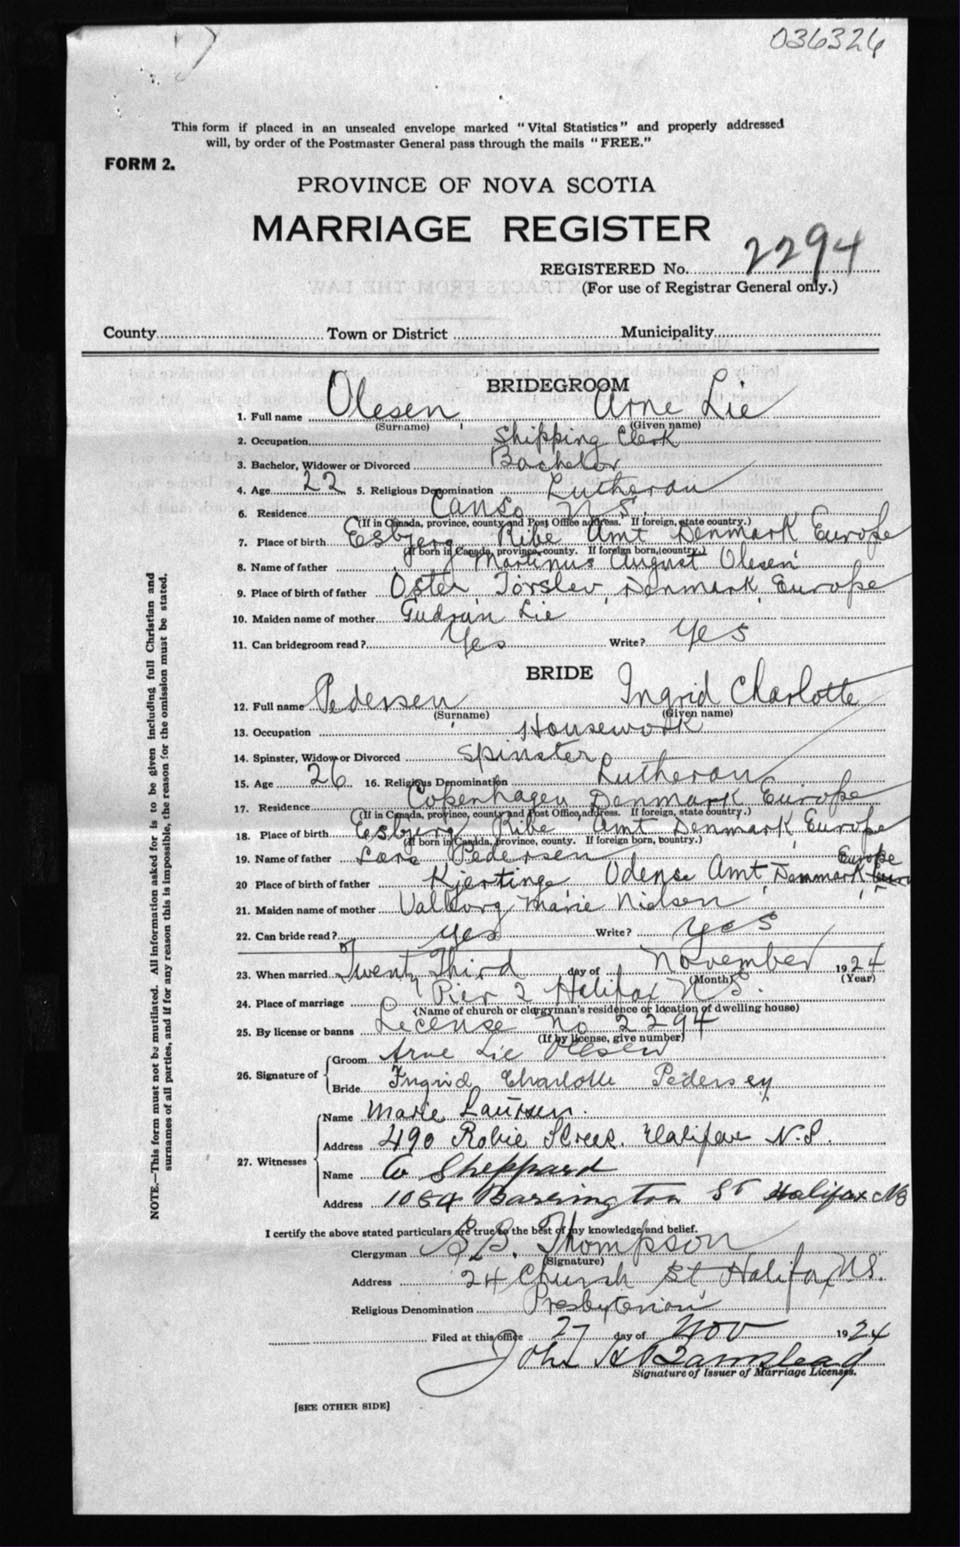 036326
This form if placed in an unsealed envelope marked "Vital Statistics" and properly addressed
will, by order of the Postmaster General pass through the mails "FREE."
FORM 2.
PROVINCE OF NOVA SCOTIA
MARRIAGE REGISTER
REGISTERED No. 2294
(For use of Registrar General only.)
County Town or District Municipality
BRIDEGROOM
1. Full name Olesen Arne Lie
(Surname) (Given name)
2. Occupation Shipping Clerk
3. Bachelor, Widower or Divorced Bachelor
4. Age 22 5. Religious Denomination Lutheran
6. Residence Canso N.S.
(If in Canada, province, county and Post Office address. If foreign, state country.)
7. Place of birth Esbjerg Ribe Amt Denmark Europe
(If born in Canada, province, county. If foreign born, country.)
8. Name of father Martinus August Olesen
9. Place of birth of father Oster Torslev, Denmark, Europe
10. Maiden name of mother Gudrun Lie
11. Can bridegroom read? Yes Write? Yes
BRIDE
12. Full name Pedersen Ingrid Charlotte
(Surname) (Given name)
13. Occupation Housework
14. Spinster, Widow or Divorced Spinster
15. Age 26 16. Religious Denomination Lutheran
17. Residence Copenhagen Denmark Europe
(If in Canada, province, county and Post Office, address. If foreign, state country.)
18. Place of birth Esbjerg Ribe Amt Denmark Europe
(If born in Canada, province, county. If foreign born, country.)
19. Name of father Lars Pedersen
Europe
20 Place of birth of father Kjertinge, Odense Amt, Denmark
21. Maiden name of mother Valborg Marie Nielsen
22. Can bride read? yes Write? yes
23. When married Twenty Third day of November 1924
(Month) (Year)
24. Place of marriage Pier 2 Halifax N.S.
(Name of church or clergyman's residence or location of dwelling house)
25. By license or banns License No 2294
(If by license, give number)
26. Signature of Groom Arne Lie Olesen
Bride Ingrid Charlotte Pedersen
27. Witnesses Name Marie Laursen.
Address 490 Robie Street. Halifax N.S.
Name W Sheppard
Address 1089 Barrington St Halifax NS
I certify the above stated particulars are true to the best of my knowledge and belief.
Clergyman Thompson
(Signature)
Address 24 Church St Halifax NS.
Religious Denomination Presbyterian
Filed at this office 27 day of Nov 1924
John H Barnstead
Signature of Issuer of Marriage Licenses.
[SEE OTHER SIDE]
NOTE.—This form must not be mutilated. All information asked for is to be given including full Christian and
surnames of all parties, and if for any reason this is impossible, the reason for the omission must be stated.